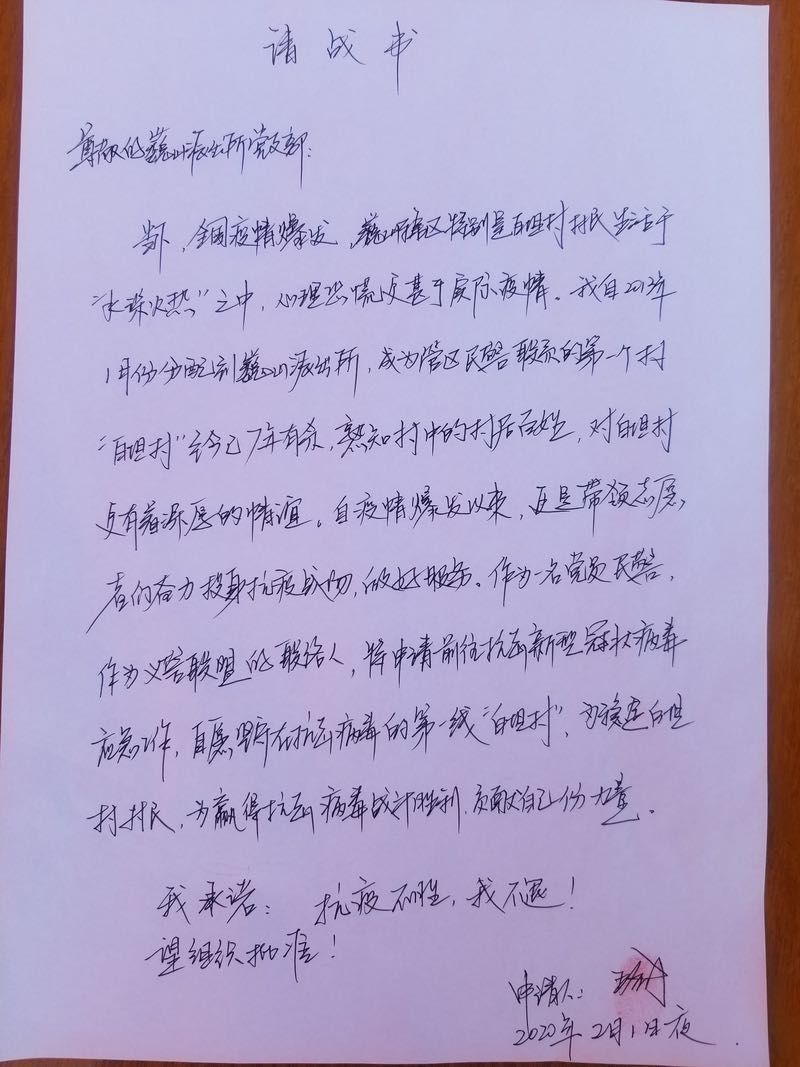 请战书
尊敬的藏山派出所党支部：
当下，全国疫情爆发，辖区特别是白坦村村民生活于
“水深火热”之中，心理恐慌更甚于实际疫情。我自2013年
1月份分配到派出所，成为管区民警联系的第一个村
“白坦村”至今已7年有余，熟知村中的村居百姓，对白坦村
更有着深厚的情谊。自疫情爆发以来，更是带领志愿
者们奋力投身抗疫战场，做好服务。作为一名党员民警，
作为义警联盟的联络人，特申请前往抗击新型冠状病毒
应急工作，自愿坚守在抗击病毒的第一线“白坦村”，为稳定白坦
村村民，为赢得抗击病毒战斗胜利，贡献自己份力量。
我承诺：抗疫不胜，我不退！
望组织批准！
申请人：
2020年2月1日夜